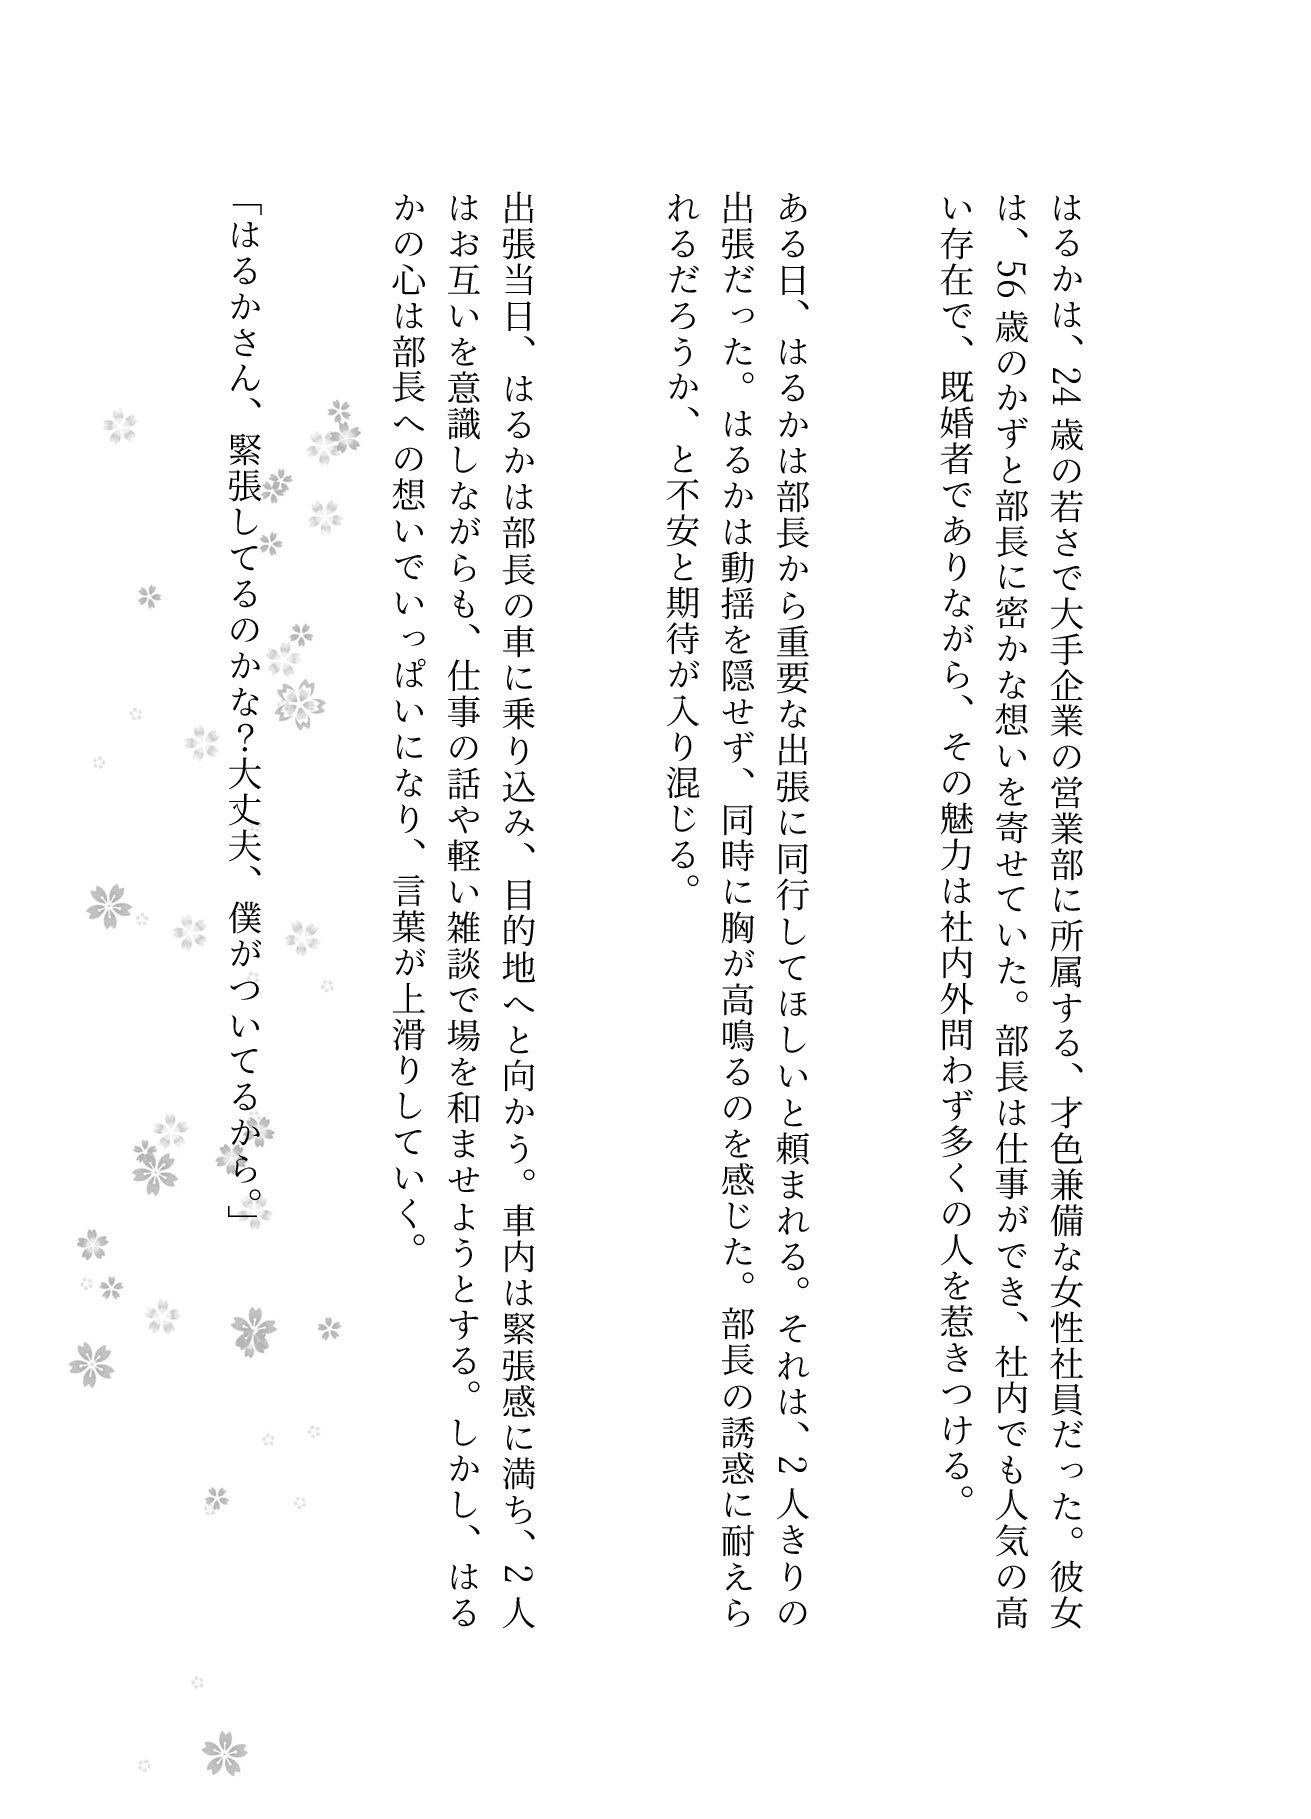 はるかは、24歳の若さで大手企業の営業部に所属する、才色兼備な女性社員だった。彼女
は、56歳のかずと部長に密かな想いを寄せていた。部長は仕事ができ、社内でも人気の高
い存在で、既婚者でありながら、その魅力は社内外問わず多くの人を惹きつける。
ある日、はるかは部長から重要な出張に同行してほしいと頼まれる。それは、2人きりの
出張だった。はるかは動揺を隠せず、同時に胸が高鳴るのを感じた。部長の誘惑に耐えら
れるだろうか、と不安と期待が入り混じる。
出張当日、はるかは部長の車に乗り込み、目的地へと向かう。車内は緊張感に満ち、2人
はお互いを意識しながらも、仕事の話や軽い雑談で場を和ませようとする。しかし、はる
かの心は部長への想いでいっぱいになり、言葉が上滑りしていく。
「はるかさん、緊張してるのかな？大丈夫、僕がついてるから。」